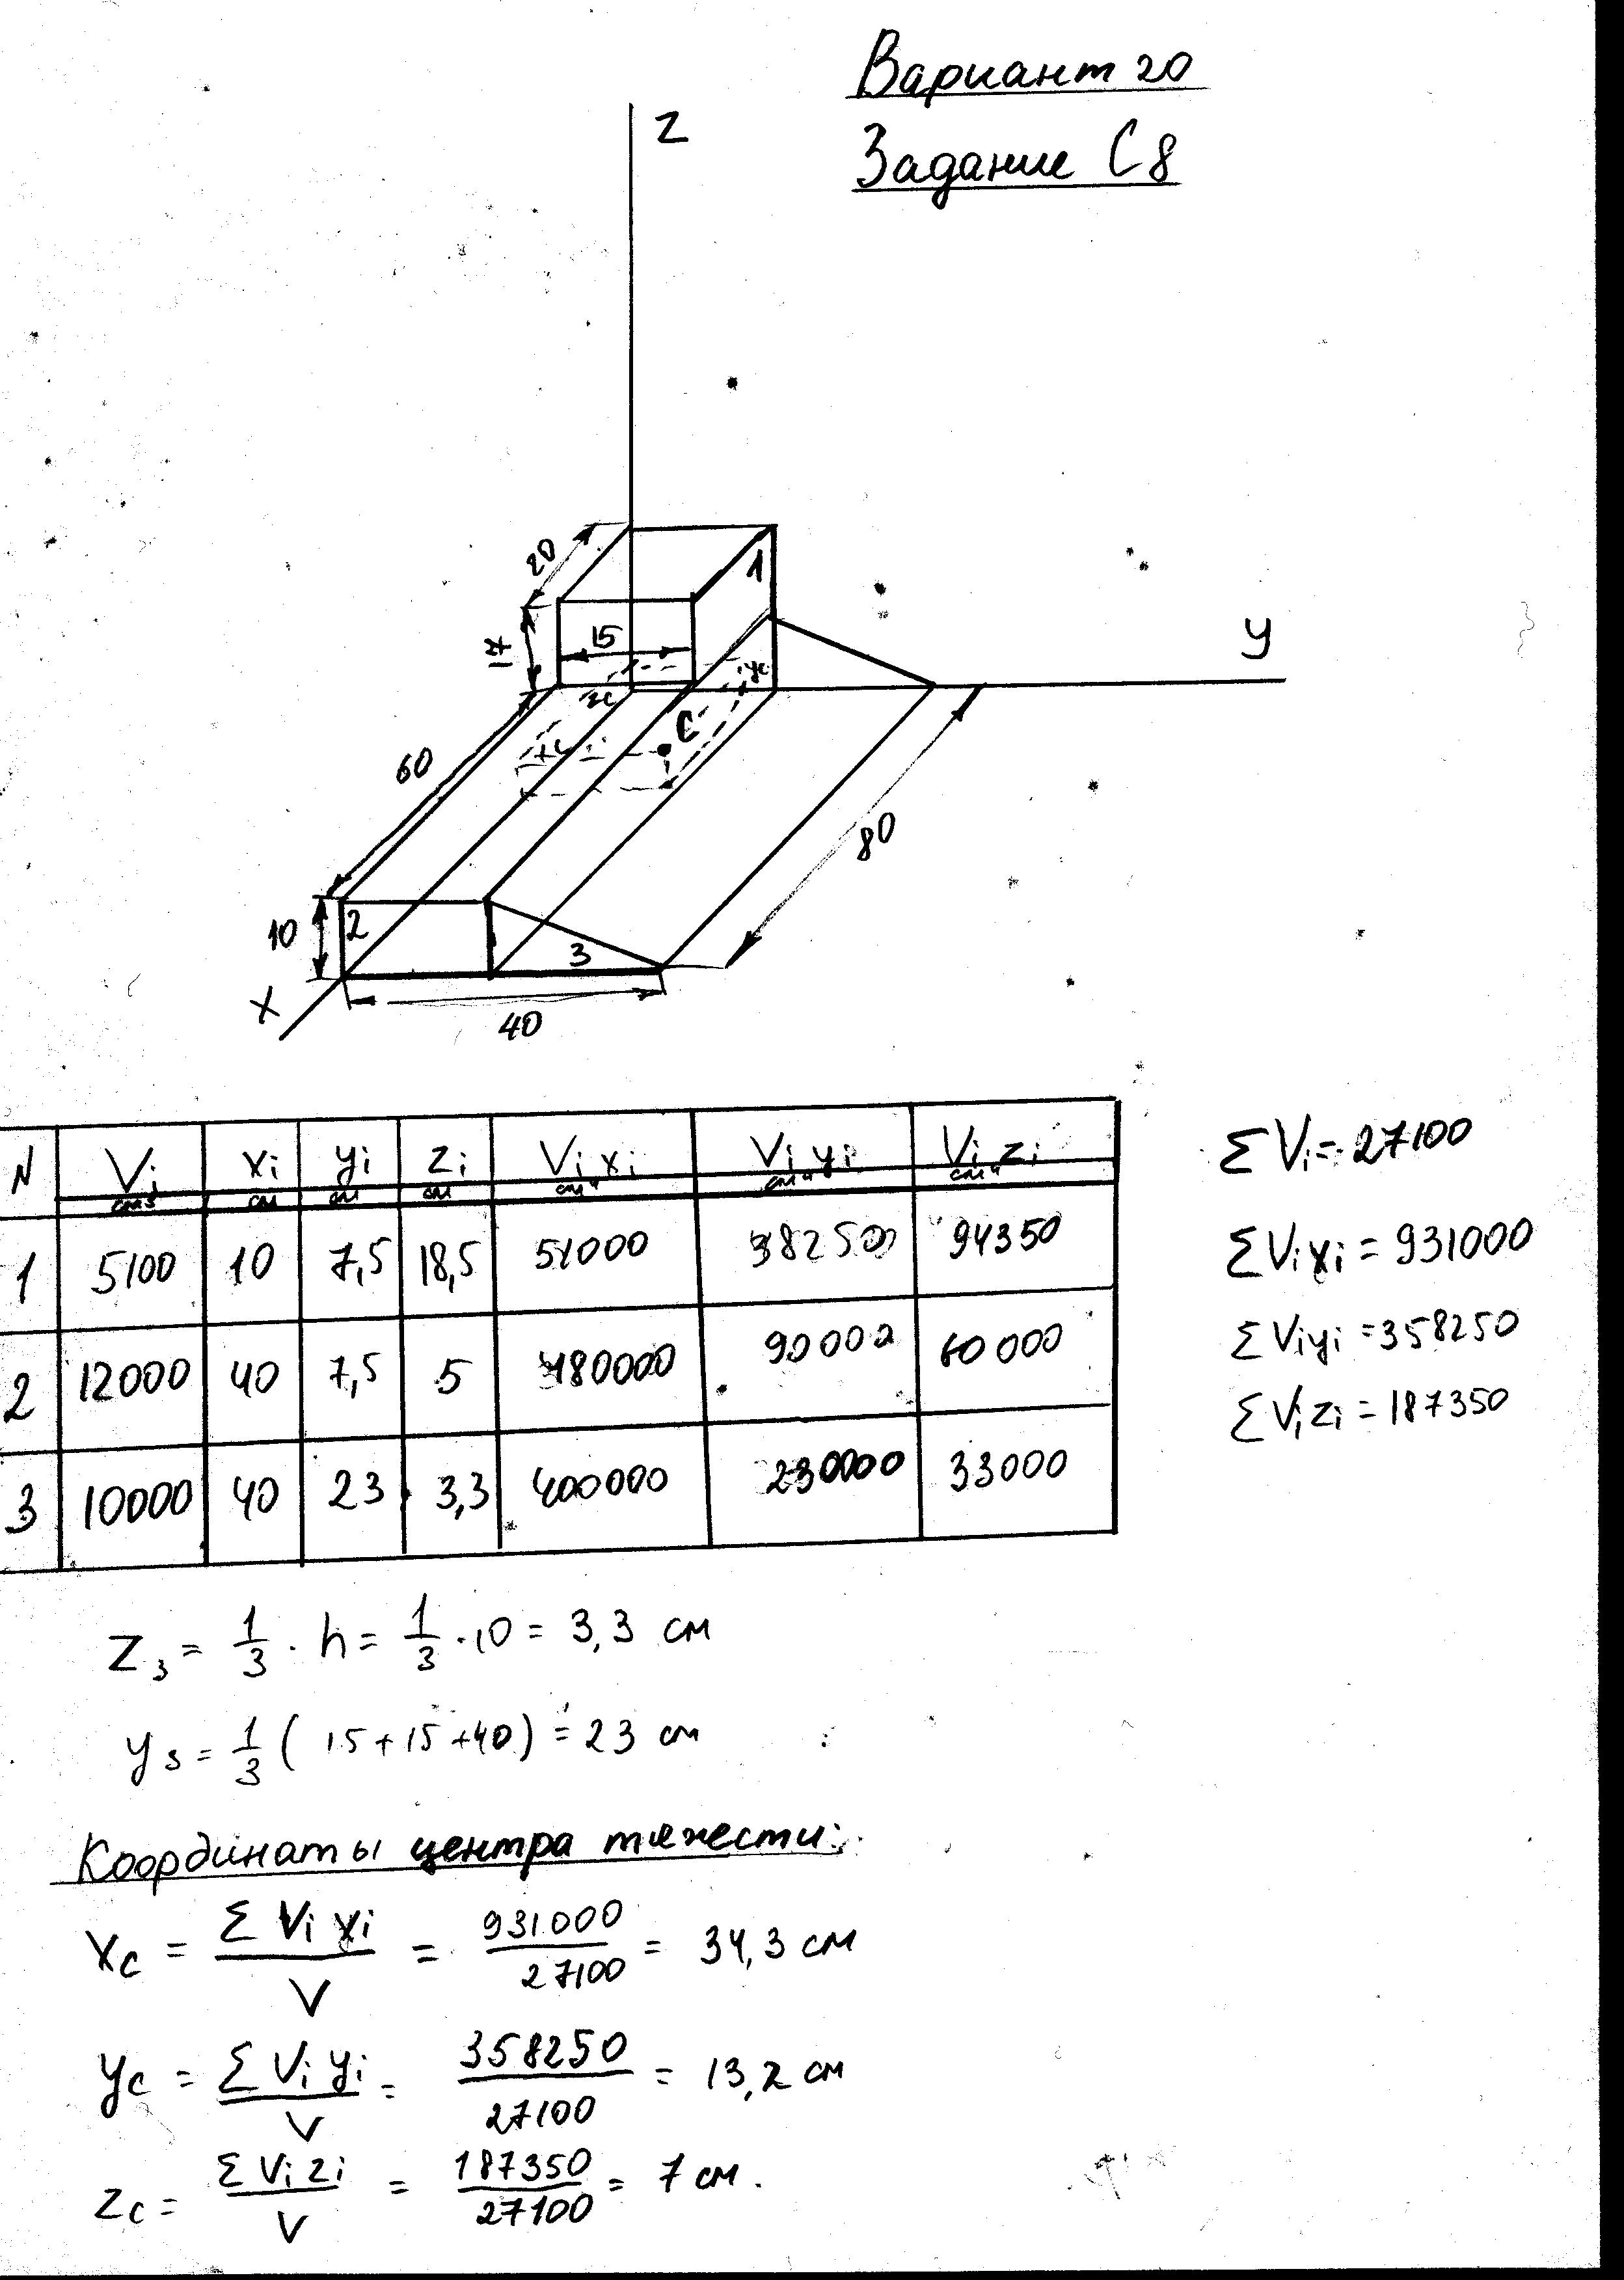 Вариант 20
Задание С8
z
20
1
17
15
y
zc
yc
C
xc
60
80
10
2
3
x
40
N Vi см³ xi см yi см zi см Vi xi см⁴ Vi yi см⁴ Vi zi см⁴
1 5100 10 7,5 18,5 51000 38250 94350
2 12000 40 7,5 5 480000 90000 60000
3 10000 40 23 3,3 400000 230000 33000
Σ Vi = 27100
Σ Vi xi = 931000
Σ Vi yi = 358250
Σ Vi zi = 187350
z₃ = 1/3 · h = 1/3 · 10 = 3,3 см
y₃ = 1/3 ( 15+15+40) = 23 см
Координаты центра тяжести:
xc = Σ Vi xi / V = 931000 / 27100 = 34,3 см
yc = Σ Vi yi / V = 358250 / 27100 = 13,2 см
zc = Σ Vi zi / V = 187350 / 27100 = 7 см.